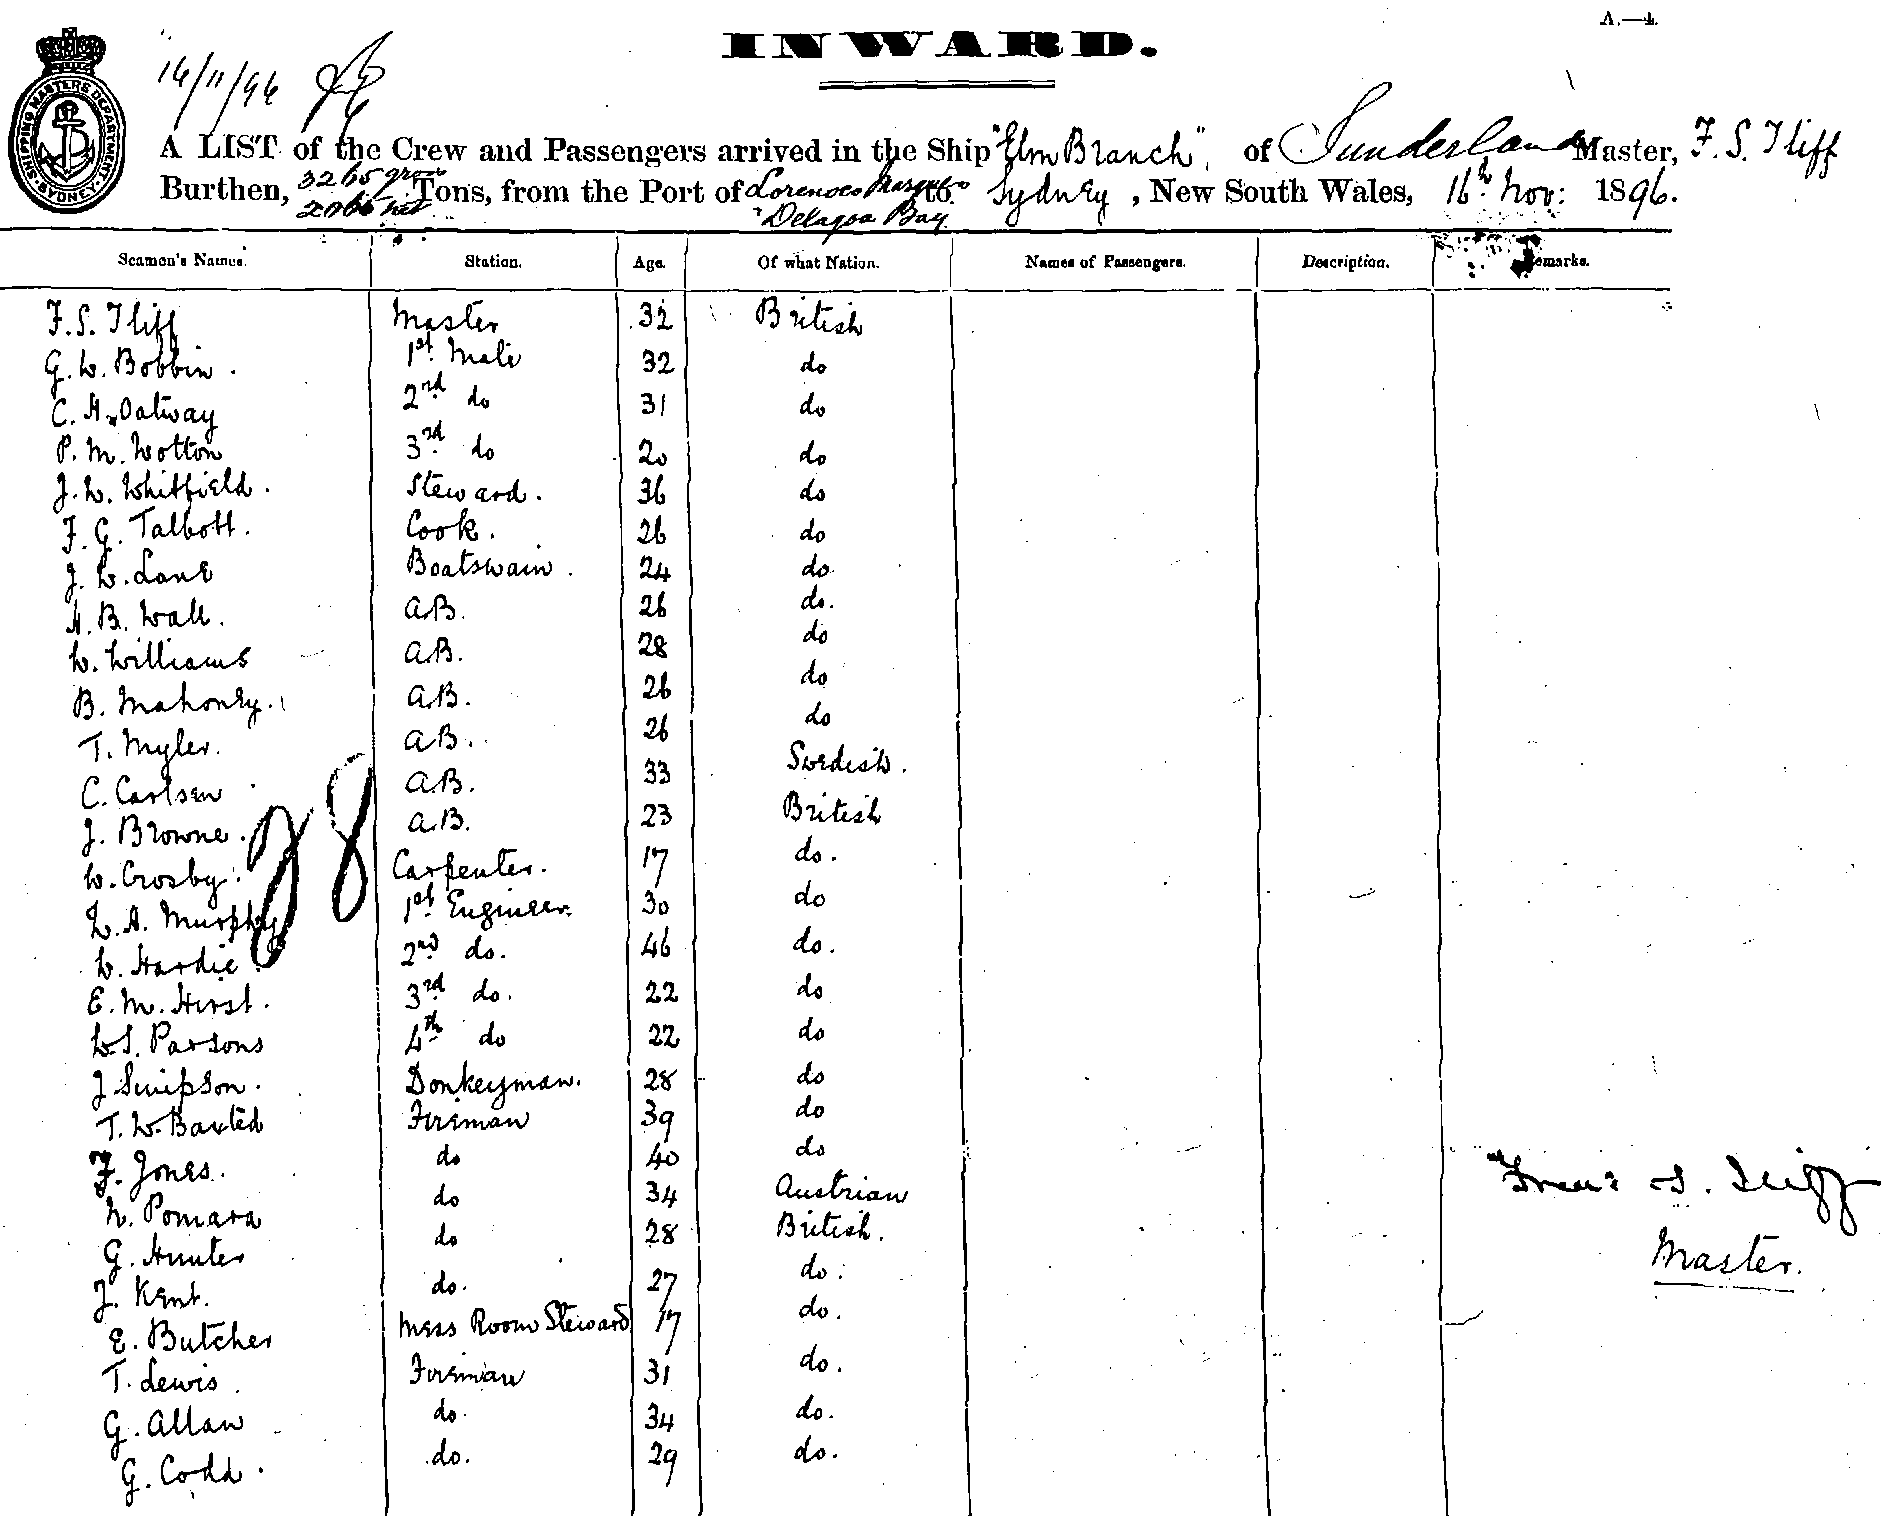 A.—4.
INWARD.
SHIPPING MASTERS DEPARTMENT SYDNEY
16/11/96
A LIST of the Crew and Passengers arrived in the Ship "Elm Branch", of Sunderland Master, F. S. Iliff
Burthen, 3265 gross 2066 net Tons, from the Port of Lorenzo Marques "Delagoa Bay to Sydney, New South Wales, 16th Nov: 1896.
Seamen's Names. Station. Age. Of what Nation. Names of Passengers. Description. Remarks.
F. S. Iliff Master 32 British
G. W. Bobbin. 1st Mate 32 do
C. H. Oatway 2nd do 31 do
P. M. Wotton 3rd do 20 do
J. W. Whitfield. Steward. 36 do
F. G. Talbott. Cook. 26 do
J. W. Lane Boatswain. 24 do
H. B. Wall. A.B. 26 do.
W. Williams A.B. 28 do
B. Mahoney. A.B. 26 do
T. Myler. A.B. 26 do
C. Carlsen A.B. 33 Swedish.
J. Browne. A.B. 23 British
W. Crosby. Carpenter. 17 do.
W. A. Murphy 1st Engineer. 30 do
W. Hardie. 2nd do. 46 do.
E. M. Hirst. 3rd do. 22 do
W. S. Parsons 4th do 22 do
J Simpson. Donkeyman. 28 do
T. W. Baxted Fireman 39 do
F. Jones. do 40 do
N. Pomara do 34 Austrian
G. Hunter do 28 British.
J. Kent. do. 27 do.
E. Butcher Mess Room Steward 17 do.
T. Lewis. Fireman 31 do.
G. Allan do. 34 do.
G. Codd. do. 29 do.
28
S. Iliff
Master.